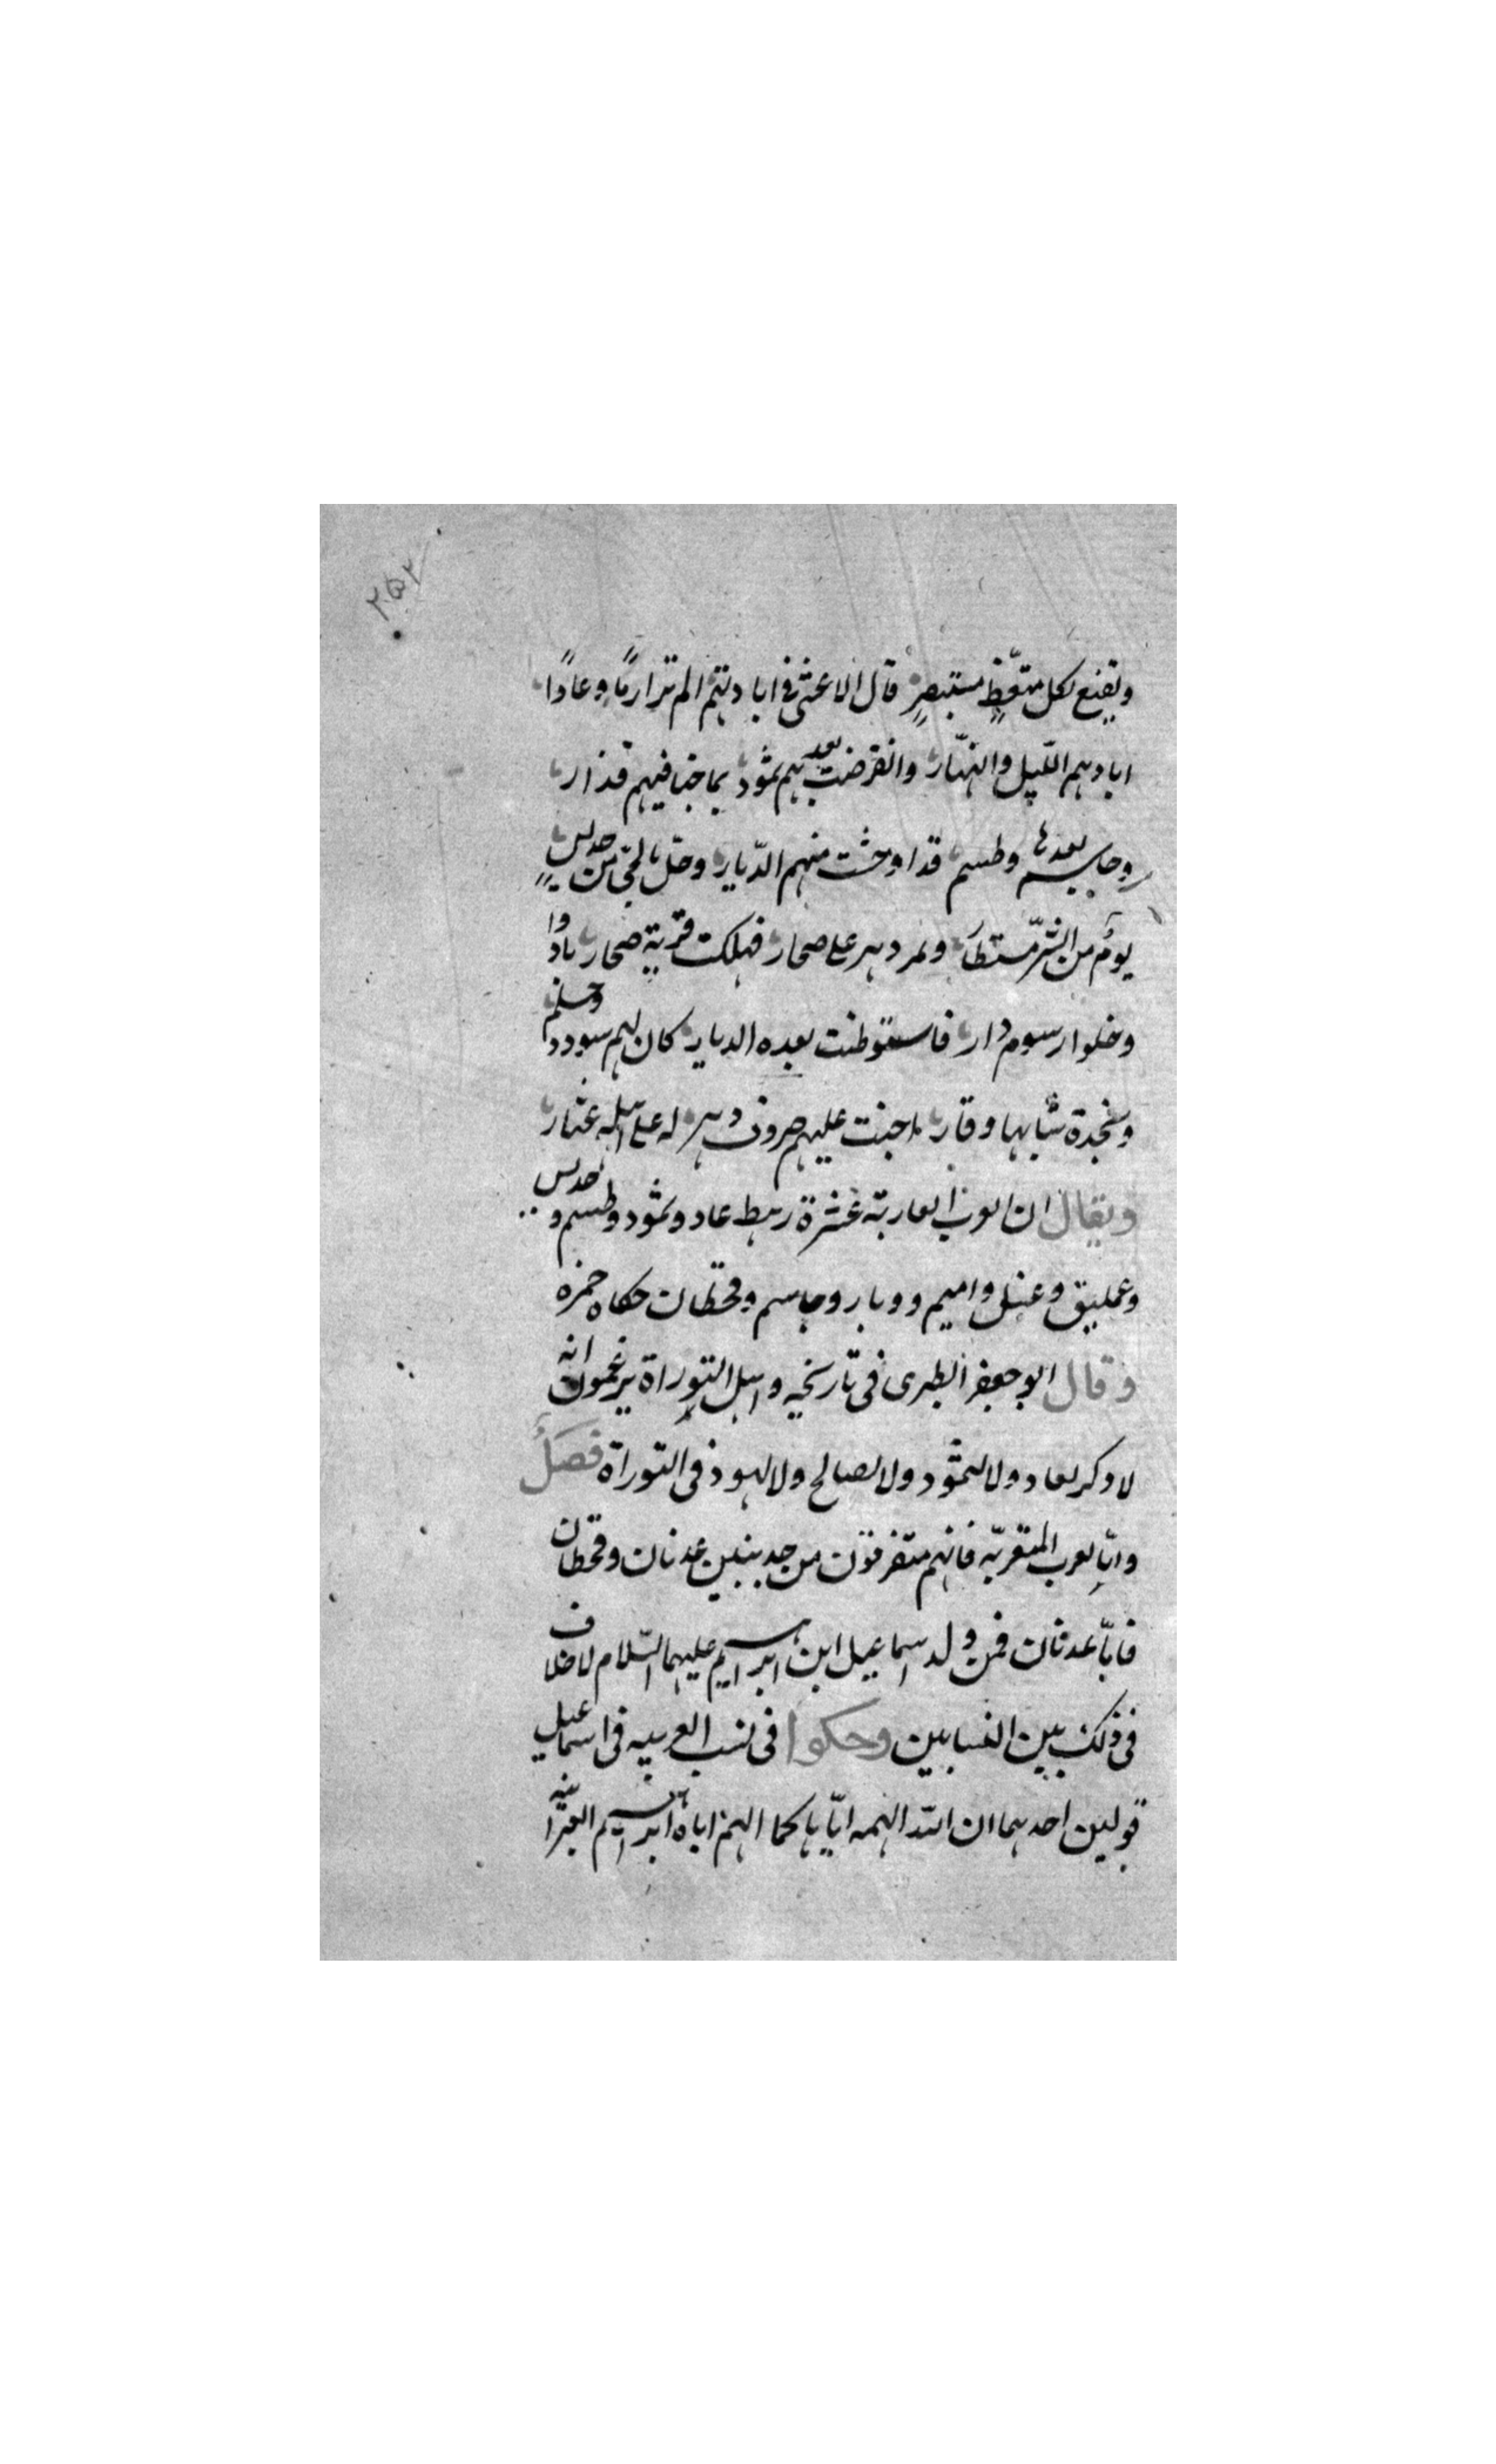 ٢٥٢
ويقنع لكل متقظٍ مستبصرٍ قال الاعشى فى ابادتهم الم تر ارمًا وعادًا
ابادهم الليل والنهار وانقرضت بعدهم ثمود بما جنا فيهم قذار
وجاسم بعدها وطسم قد اوحشت منهم الديار وحل بالحى من جديسٍ
يومٌ من الشر مستطار ومر دهر على صحار فهلكت قرية صحار بادوا
وخلوا رسوم دار فاستوطنت بعده الديار كان لهم سودد وحلم
ونجدة شابها وقار اخنت عليهم صروف دهر له على اهله عثار
ويقال ان العرب العاربة عشرة رهط عاد وثمود وطسم وجديس
وعمليق وعبيل واميم ووبار وجاسم وقحطان حكاه حمزه
وقال ابو جعفر الطبرى فى تاريخه واهل التوراة يزعمون انه
لا ذكر لعاد ولا لثمود ولا لصالح ولا لهود فى التوراة فصل
وامّا العرب المتعربّه فانهم متفرقون من جدبنين عدنان وقحطان
فامّا عدنان فمن ولد اسماعيل ابن ابراهيم عليهما السّلام لا خلاف
فى ذلك بين النسابين وحكوا فى نسب العربيه فى اسماعيل
قولين احدهما ان الله الهمه اياها كما الهم اباه ابراهيم العبرانيه